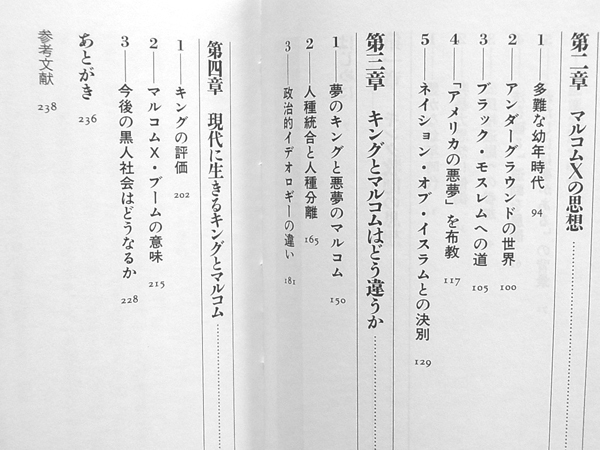 第二章　マルコムXの思想
1──多難な幼年時代 94
2──アンダーグラウンドの世界 100
3──ブラック・モスレムへの道 105
4──「アメリカの悪夢」を布教 117
5──ネイション・オブ・イスラムとの決別 129
第三章　キングとマルコムはどう違うか
1──夢のキングと悪夢のマルコム 150
2──人種統合と人種分離 165
3──政治的イデオロギーの違い 181
第四章　現代に生きるキングとマルコム
1──キングの評価 202
2──マルコムX・ブームの意味 215
3──今後の黒人社会はどうなるか 228
あとがき 236
参考文献 238